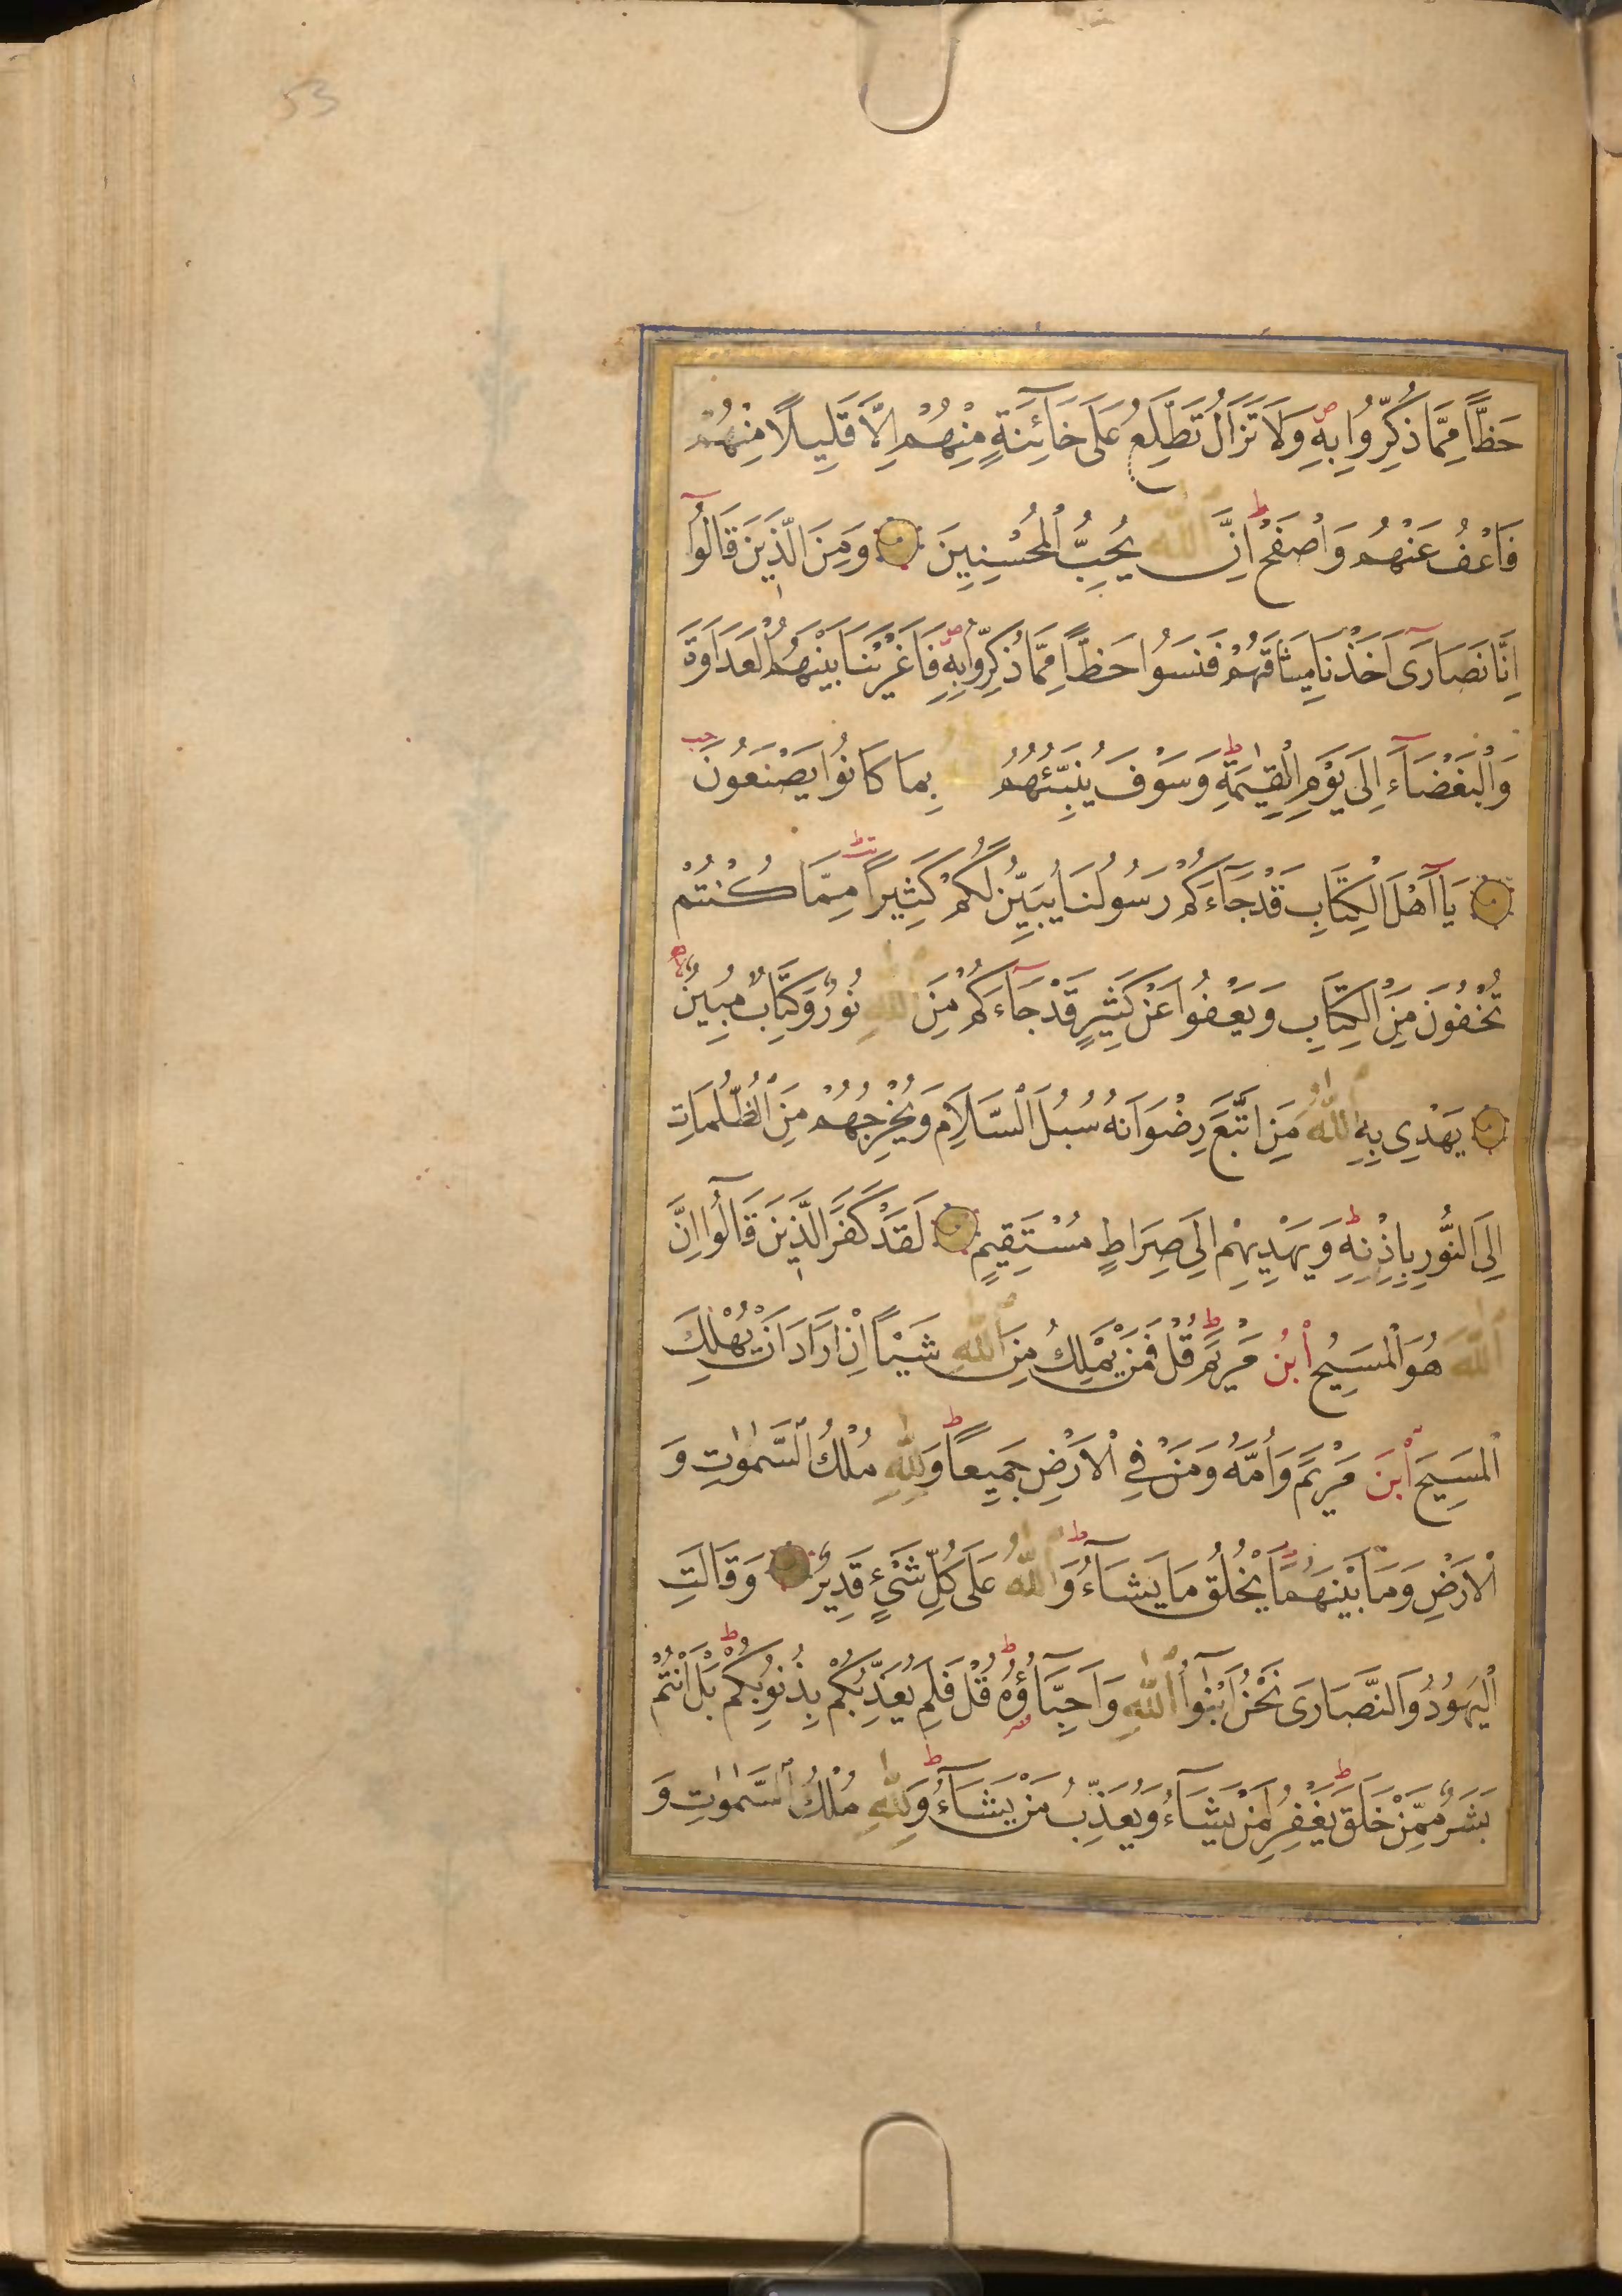 53
حَظًّا مِمَّا ذُكِّرُوا بِهِ وَلَا تَزَالُ تَطَّلِعُ عَلَى خَآئِنَةٍ مِنْهُمْ اِلَّا قَلِيلًا مِنْهُمْ
فَاعْفُ عَنْهُمْ وَاصْفَحْ اِنَّ اللّٰهَ يُحِبُّ الْمُحْسِنِينَ وَمِنَ الَّذِينَ قَالُوا
اِنَّا نَصَارَى اَخَذْنَا مِيثَاقَهُمْ فَنَسُوا حَظًّا مِمَّا ذُكِّرُوا بِهِ فَاَغْرَيْنَا بَيْنَهُمُ الْعَدَاوَةَ
وَالْبَغْضَآءَ اِلَى يَوْمِ الْقِيٰمَةِ وَسَوْفَ يُنَبِّئُهُمُ اللّٰهُ بِمَا كَانُوا يَصْنَعُونَ
يَا اَهْلَ الْكِتَابِ قَدْ جَآءَكُمْ رَسُولُنَا يُبَيِّنُ لَكُمْ كَثِيرًا مِمَّا كُنْتُمْ
تُخْفُونَ مِنَ الْكِتَابِ وَيَعْفُوا عَنْ كَثِيرٍ قَدْ جَآءَكُمْ مِنَ اللّٰهِ نُورٌ وَكِتَابٌ مُبِينٌ
يَهْدِى بِهِ اللّٰهُ مَنِ اتَّبَعَ رِضْوَانَهُ سُبُلَ السَّلَامِ وَيُخْرِجُهُمْ مِنَ الظُّلُمَاتِ
اِلَى النُّورِ بِاِذْنِهِ وَيَهْدِيهِمْ اِلَى صِرَاطٍ مُسْتَقِيمٍ لَقَدْ كَفَرَ الَّذِينَ قَالُوا اِنَّ
اللّٰهَ هُوَ الْمَسِيحُ ابْنُ مَرْيَمَ قُلْ فَمَنْ يَمْلِكُ مِنَ اللّٰهِ شَيْـًٔا اِنْ اَرَادَ اَنْ يُهْلِكَ
الْمَسِيحَ ابْنَ مَرْيَمَ وَاُمَّهُ وَمَنْ فِى الْاَرْضِ جَمِيعًا وَلِلّٰهِ مُلْكُ السَّمٰوٰتِ وَ
الْاَرْضِ وَمَا بَيْنَهُمَا يَخْلُقُ مَا يَشَآءُ وَاللّٰهُ عَلَى كُلِّ شَيْءٍ قَدِيرٌ وَقَالَتِ
الْيَهُودُ وَالنَّصَارَى نَحْنُ اَبْنٰٓوُا اللّٰهِ وَاَحِبَّآؤُهُ قُلْ فَلِمَ يُعَذِّبُكُمْ بِذُنُوبِكُمْ بَلْ اَنْتُمْ
بَشَرٌ مِمَّنْ خَلَقَ يَغْفِرُ لِمَنْ يَشَآءُ وَيُعَذِّبُ مَنْ يَشَآءُ وَلِلّٰهِ مُلْكُ السَّمٰوٰتِ وَ